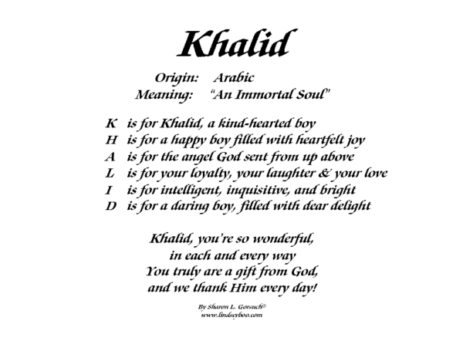 Khalid
Origin: Arabic
Meaning: "An Immortal Soul"
K is for Khalid, a kind-hearted boy
H is for a happy boy filled with heartfelt joy
A is for the angel God sent from up above
L is for your loyalty, your laughter & your love
I is for intelligent, inquisitive, and bright
D is for a daring boy, filled with dear delight
Khalid, you're so wonderful,
in each and every way
You truly are a gift from God,
and we thank Him every day!
By Sharon L. Govasch©
www.lindseyboo.com